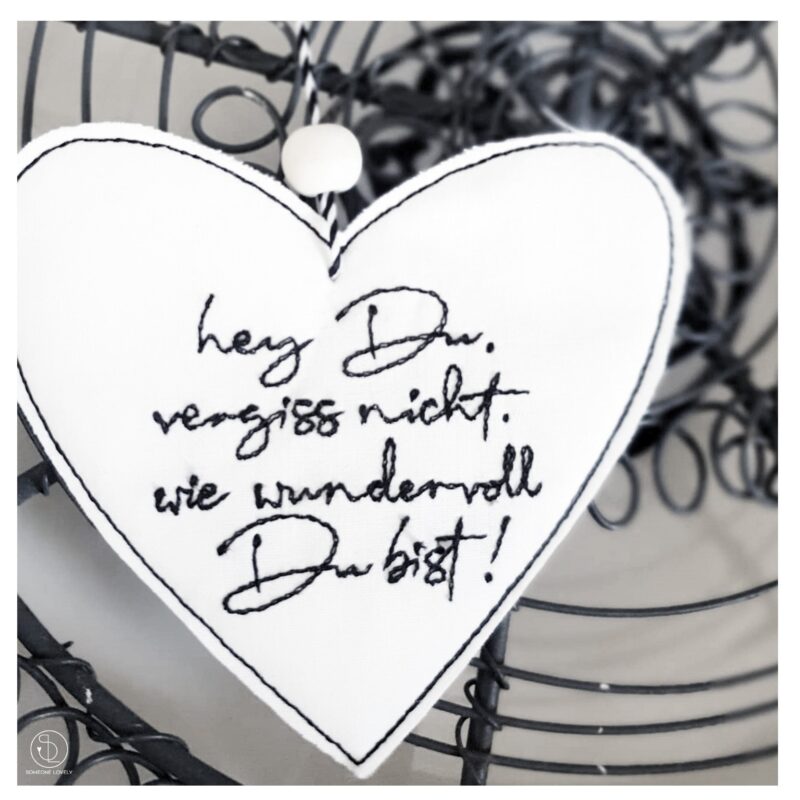 hey Du.
vergiss nicht.
wie wundervoll
Du bist!
SOMEONE LOVELY